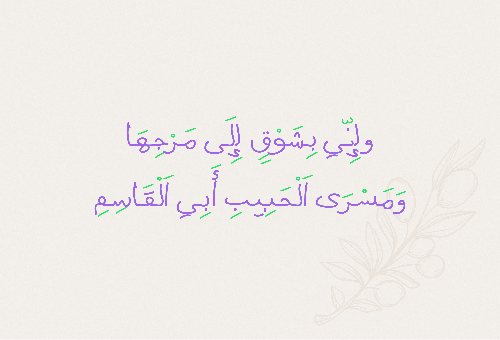 وإِنِّي بِشَوْقٍ إِلَى مَرْجِهَا
وَمَسْرَى اَلْحَبِيبِ أَبِي اَلْقَاسِمِ